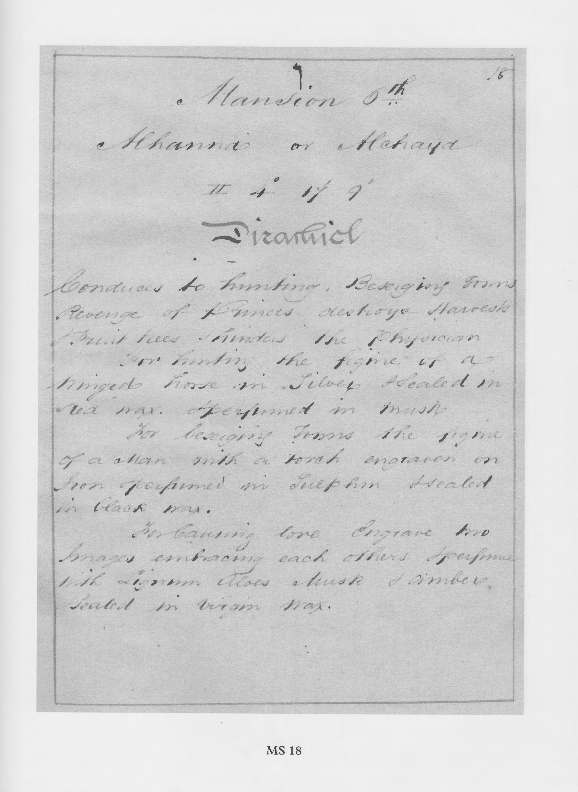 18
Mansion 6th
Alhanna or Alchaya
II 4° 17' 9"
Dirachiel
Conduces to hunting, Beseiging Towns
Revenge of Princes destroys Harvests
& Fruit trees & hinders the Physician
For hunting the figure of a
winged horse in Silver & Sealed in
Red wax. & perfumed in Musk
For beseiging Towns the figure
of a Man with a torch engraven on
Iron & perfumed in Sulphur & sealed
in black wax.
For Causing love Engrave two
Images embracing each others & perfume
with Lignum Aloes Musk & amber.
Sealed in virgin wax.
MS 18